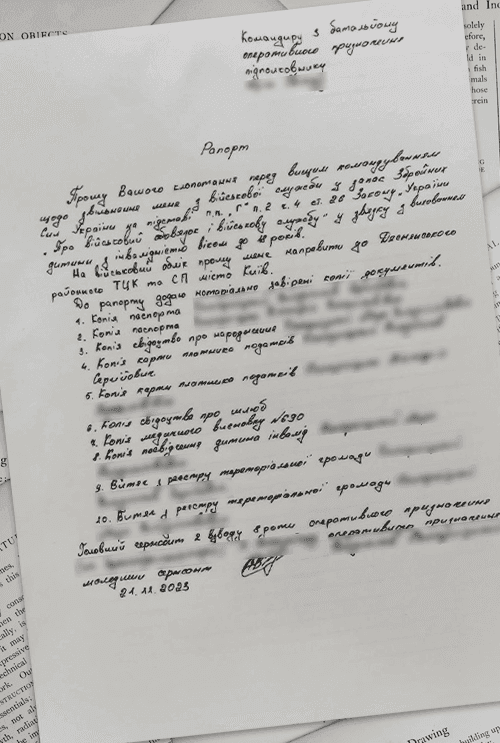 Командиру 3 батальйону
оперативного призначення
підполковнику
Рапорт
Прошу Вашого клопотання перед вищим командуванням
щодо звільнення мене з військової служби у запас Збройних
Сил України на підставі п.п. "Г" п.2 ч.4 ст.26 Закону "України
"Про військовий обовязок і військову службу" у звязку з вихованням
дитини з інвалідністю віком до 18 років.
На військовий облік прошу мене направити до
районного ТЦК та СП місто Київ.
До рапорту додаю нотаріально завірені копії документів.
1. Копія паспорта
2. Копія паспорта
3. Копія свідоцтво про народження
4. Копія карти платника податків
Сергійович
5. Копія карти платника податків
6. Копія свідоцтва про шлюб
7. Копія медичного висновку №690
8. Копія посвідчення дитина інвалід
9. Витяг з реєстру територіальної громади
10. Витяг з реєстру територіальної громади
Головний сержант 2 взводу роти оперативного призначення
оперативного призначення
молодший сержант
21.11.2023
ON OBJECTS
and In
solely
efore,
or de-
ld in
fish
mals
hose
erein
Drawing
building up